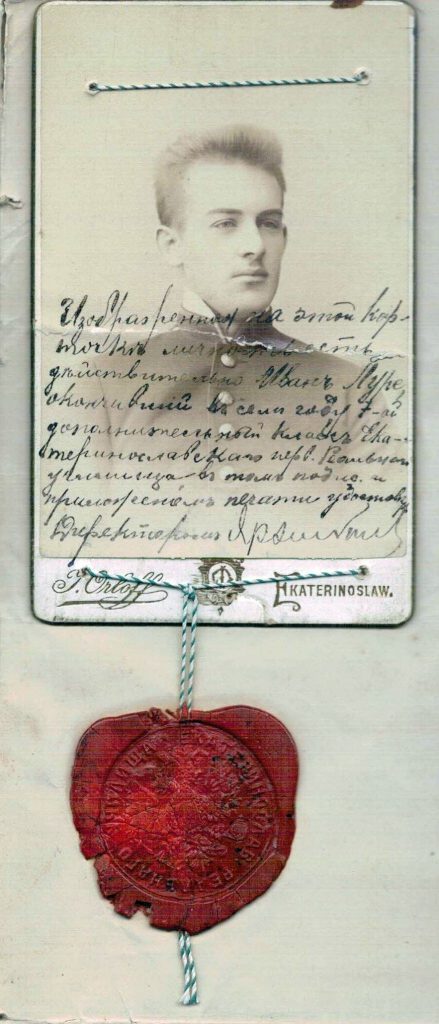 Изображенная на этой кар-
точкѣ личность есть
дѣйствительно Иванъ Луре
окончившій въ семъ годѣ 7-ой
дополнительный классъ Ека-
теринославскаго перв. Реальнаго
училища в томъ подп. и
приложеніемъ печати удостовѣр.
Директоръ
J. Orloff EKATERINOSLAW.